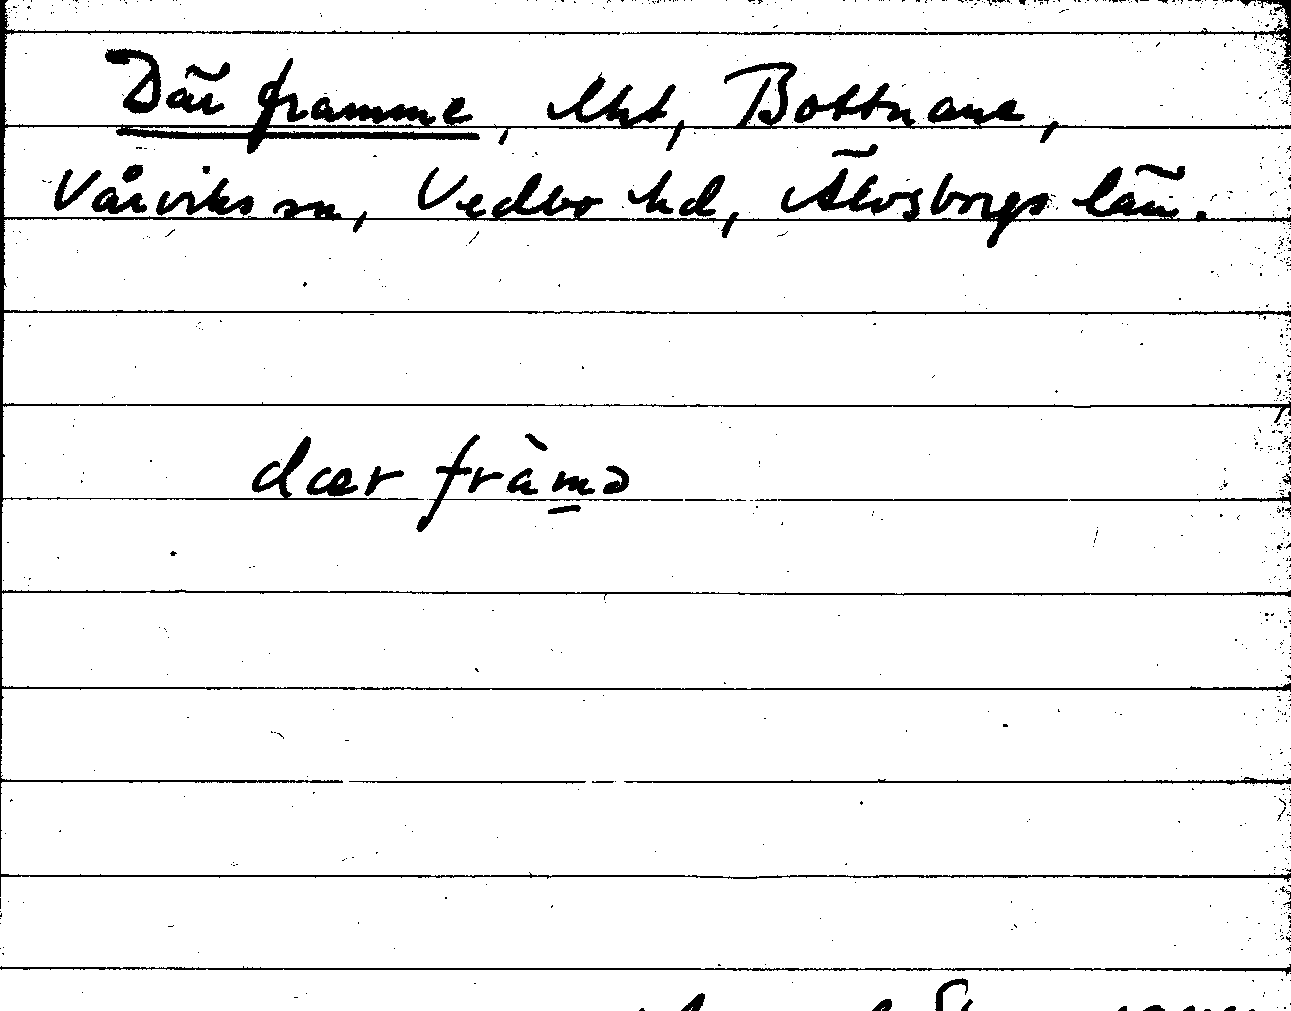 Där framme, lht, Bottnane,
Vårviks sn, Vedbo hd, Älvsborgs län.
dær fràmə